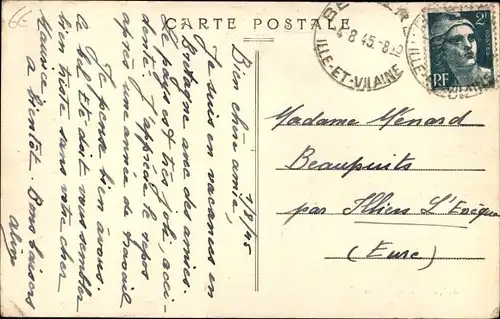 6-
CARTE POSTALE
4-8 45
ILLE-ET-VILAINE
2F
RF
7/8/45
Bien chère amie,
Je suis en vacances en
Bretagne avec des amies.
Le pays est très joli, acci-
denté. J'apprécie le repos
après une année de travail
Je pense bien à vous.
Le Val Été doit vous sembler
bien triste sans votre cher
Maurice
à bientôt. Bons baisers
Madame Menard
Beaupuits
par Illiers L'Evêque
(Eure)